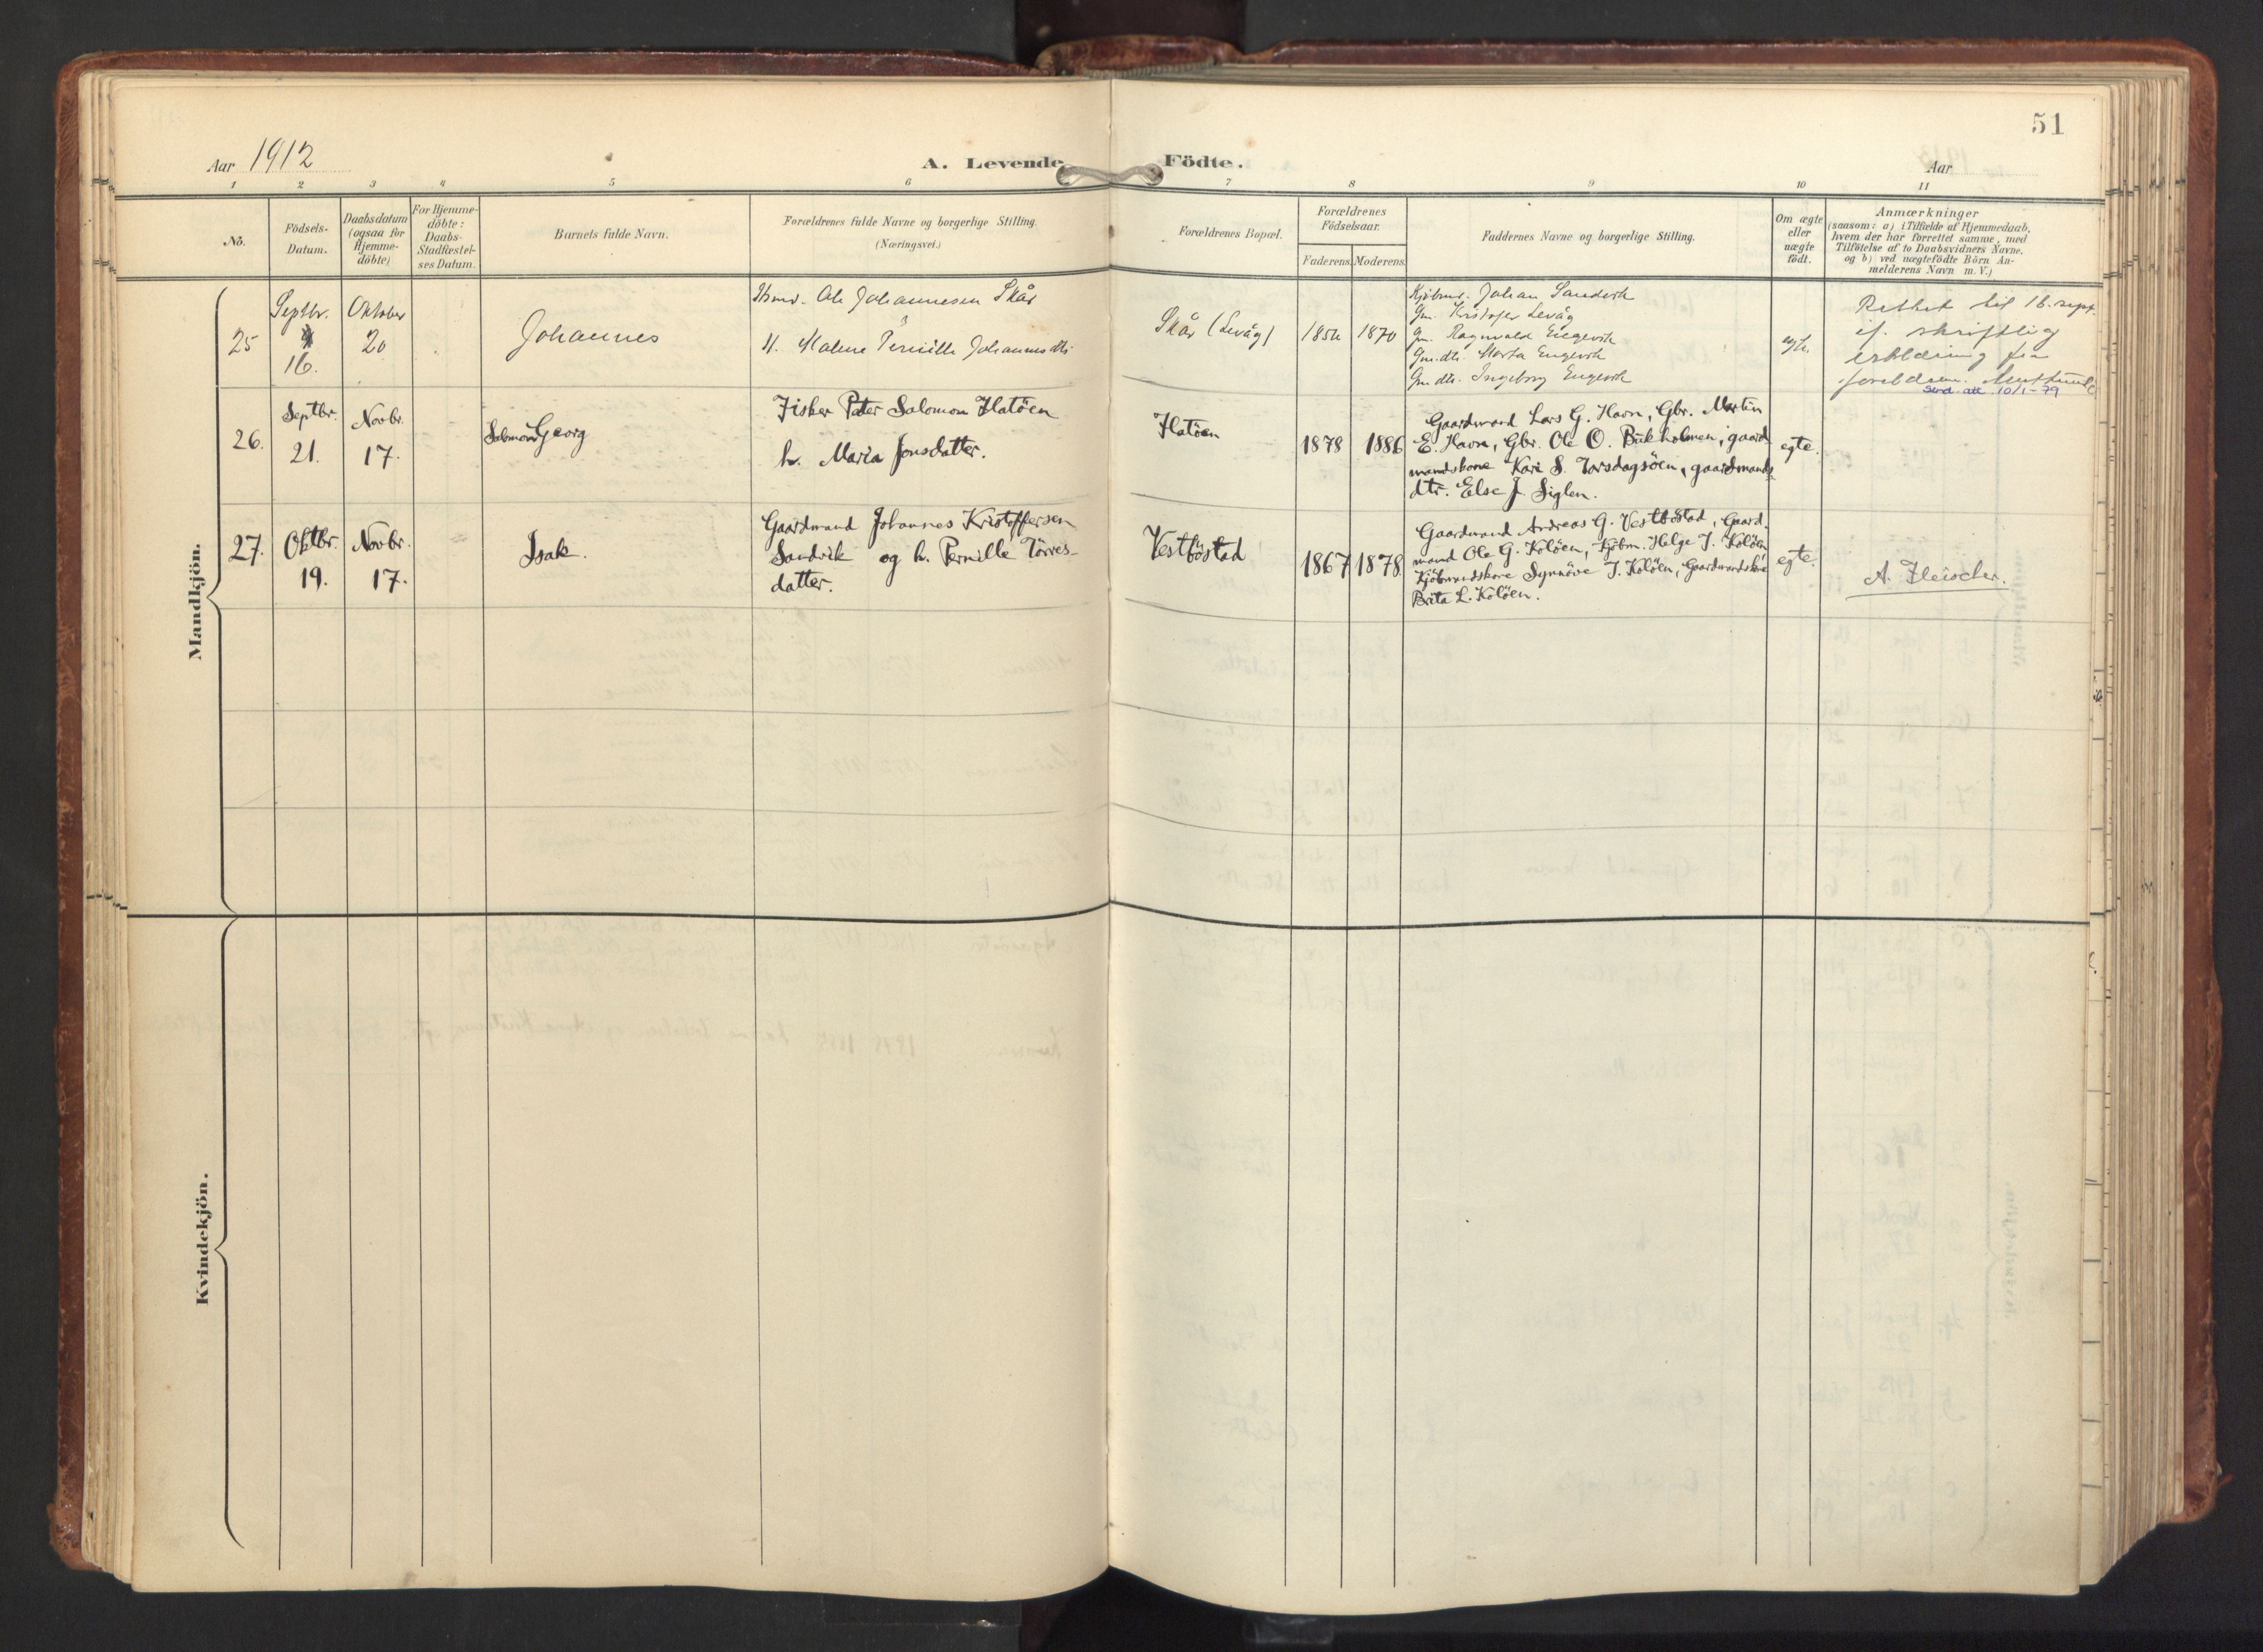 51
Aar 1912
A. Levende Födte.
Aar
1 2 3 4 5 6 7 8 9 10 11
No.
Födsels-Datum.
Daabsdatum (ogsaa for Hjemme-döbte)
For Hjemme-döbte: Daabs-Stadfæstel-ses Datum.
Barnets fulde Navn.
Forældrenes fulde Navne og borgerlige Stilling.
(Næringsvei.)
Forældrenes Bopæl.
Forældrenes Födselsaar.
Faderens. Moderens.
Faddernes Navne og borgerlige Stilling.
Om ægte eller uægte födt.
Anmærkninger
(saasom: a) i Tilfælde af Hjemmedaab,
hvem der har forrettet samme, med
Tilföielse af to Daabsvidners Navne,
og b) ved uægtefödte Börn An-
melderens Navn m. V.)
Mandkjön.
25
Septbr.
16.
Oktober
20
Johannes
Ole Johannesen Skår
H. Malene Pernille Johannesdtr.
Skår (Levåg)
1854 1870
Kjöbmd. Johan Sandvik
Gm. Kristofer Levåg
Gm. Ragnvald Engevik
Gm.dtr. Marta Engevik
Gm.dtr. Ingeborg Engevik
egte.
Rettet til 16. sept.
if. skriftlig
erklæring fra
foreldrene.
Send. att. 10/1-79
26.
Septbr.
21.
Novbr.
17.
Salomon Georg
Fisker Peter Salomon Flatöen
h. Maria Jonsdatter.
Flatöen
1878 1886
Gaardmand Lars G. Havn, Gbr. Martin
E. Havn, Gbr. Ole O. Birkholmen, gaard
mandskone Kari S. Torsdagsöen, gaardmands
dtr. Else J. Siglen.
egte.
27.
Oktbr.
19.
Novbr.
17.
Isak.
Gaardmand Johannes Kristoffersen
Sandvik og h. Pernille Törres-
datter.
Vestböstad
1867 1878
Gaardmand Andreas G. Vestböstad, Gaard.
mand Ole G. Kolöen, Kjöbm. Helge J. Kolöen
Kjöbmandskone Synnöve J. Kolöen, Gaardmandskone
Brita L. Kolöen.
egte.
A. Fleischer.
Kvindekjön.